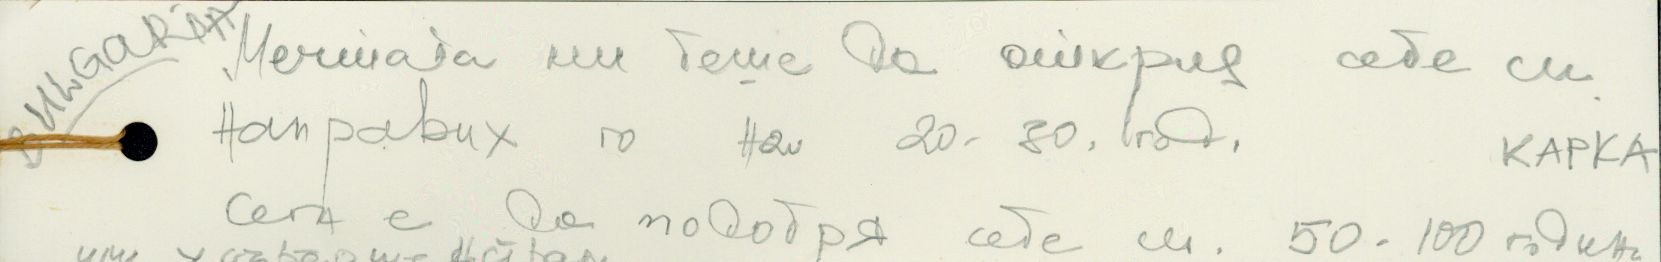 BULGARIA
Мечтата ми беше да открия себе си.
Направих го на 20-30. год.
КАРКА
Сега е да подобря себе си. 50-100 години
или усъвършенствам